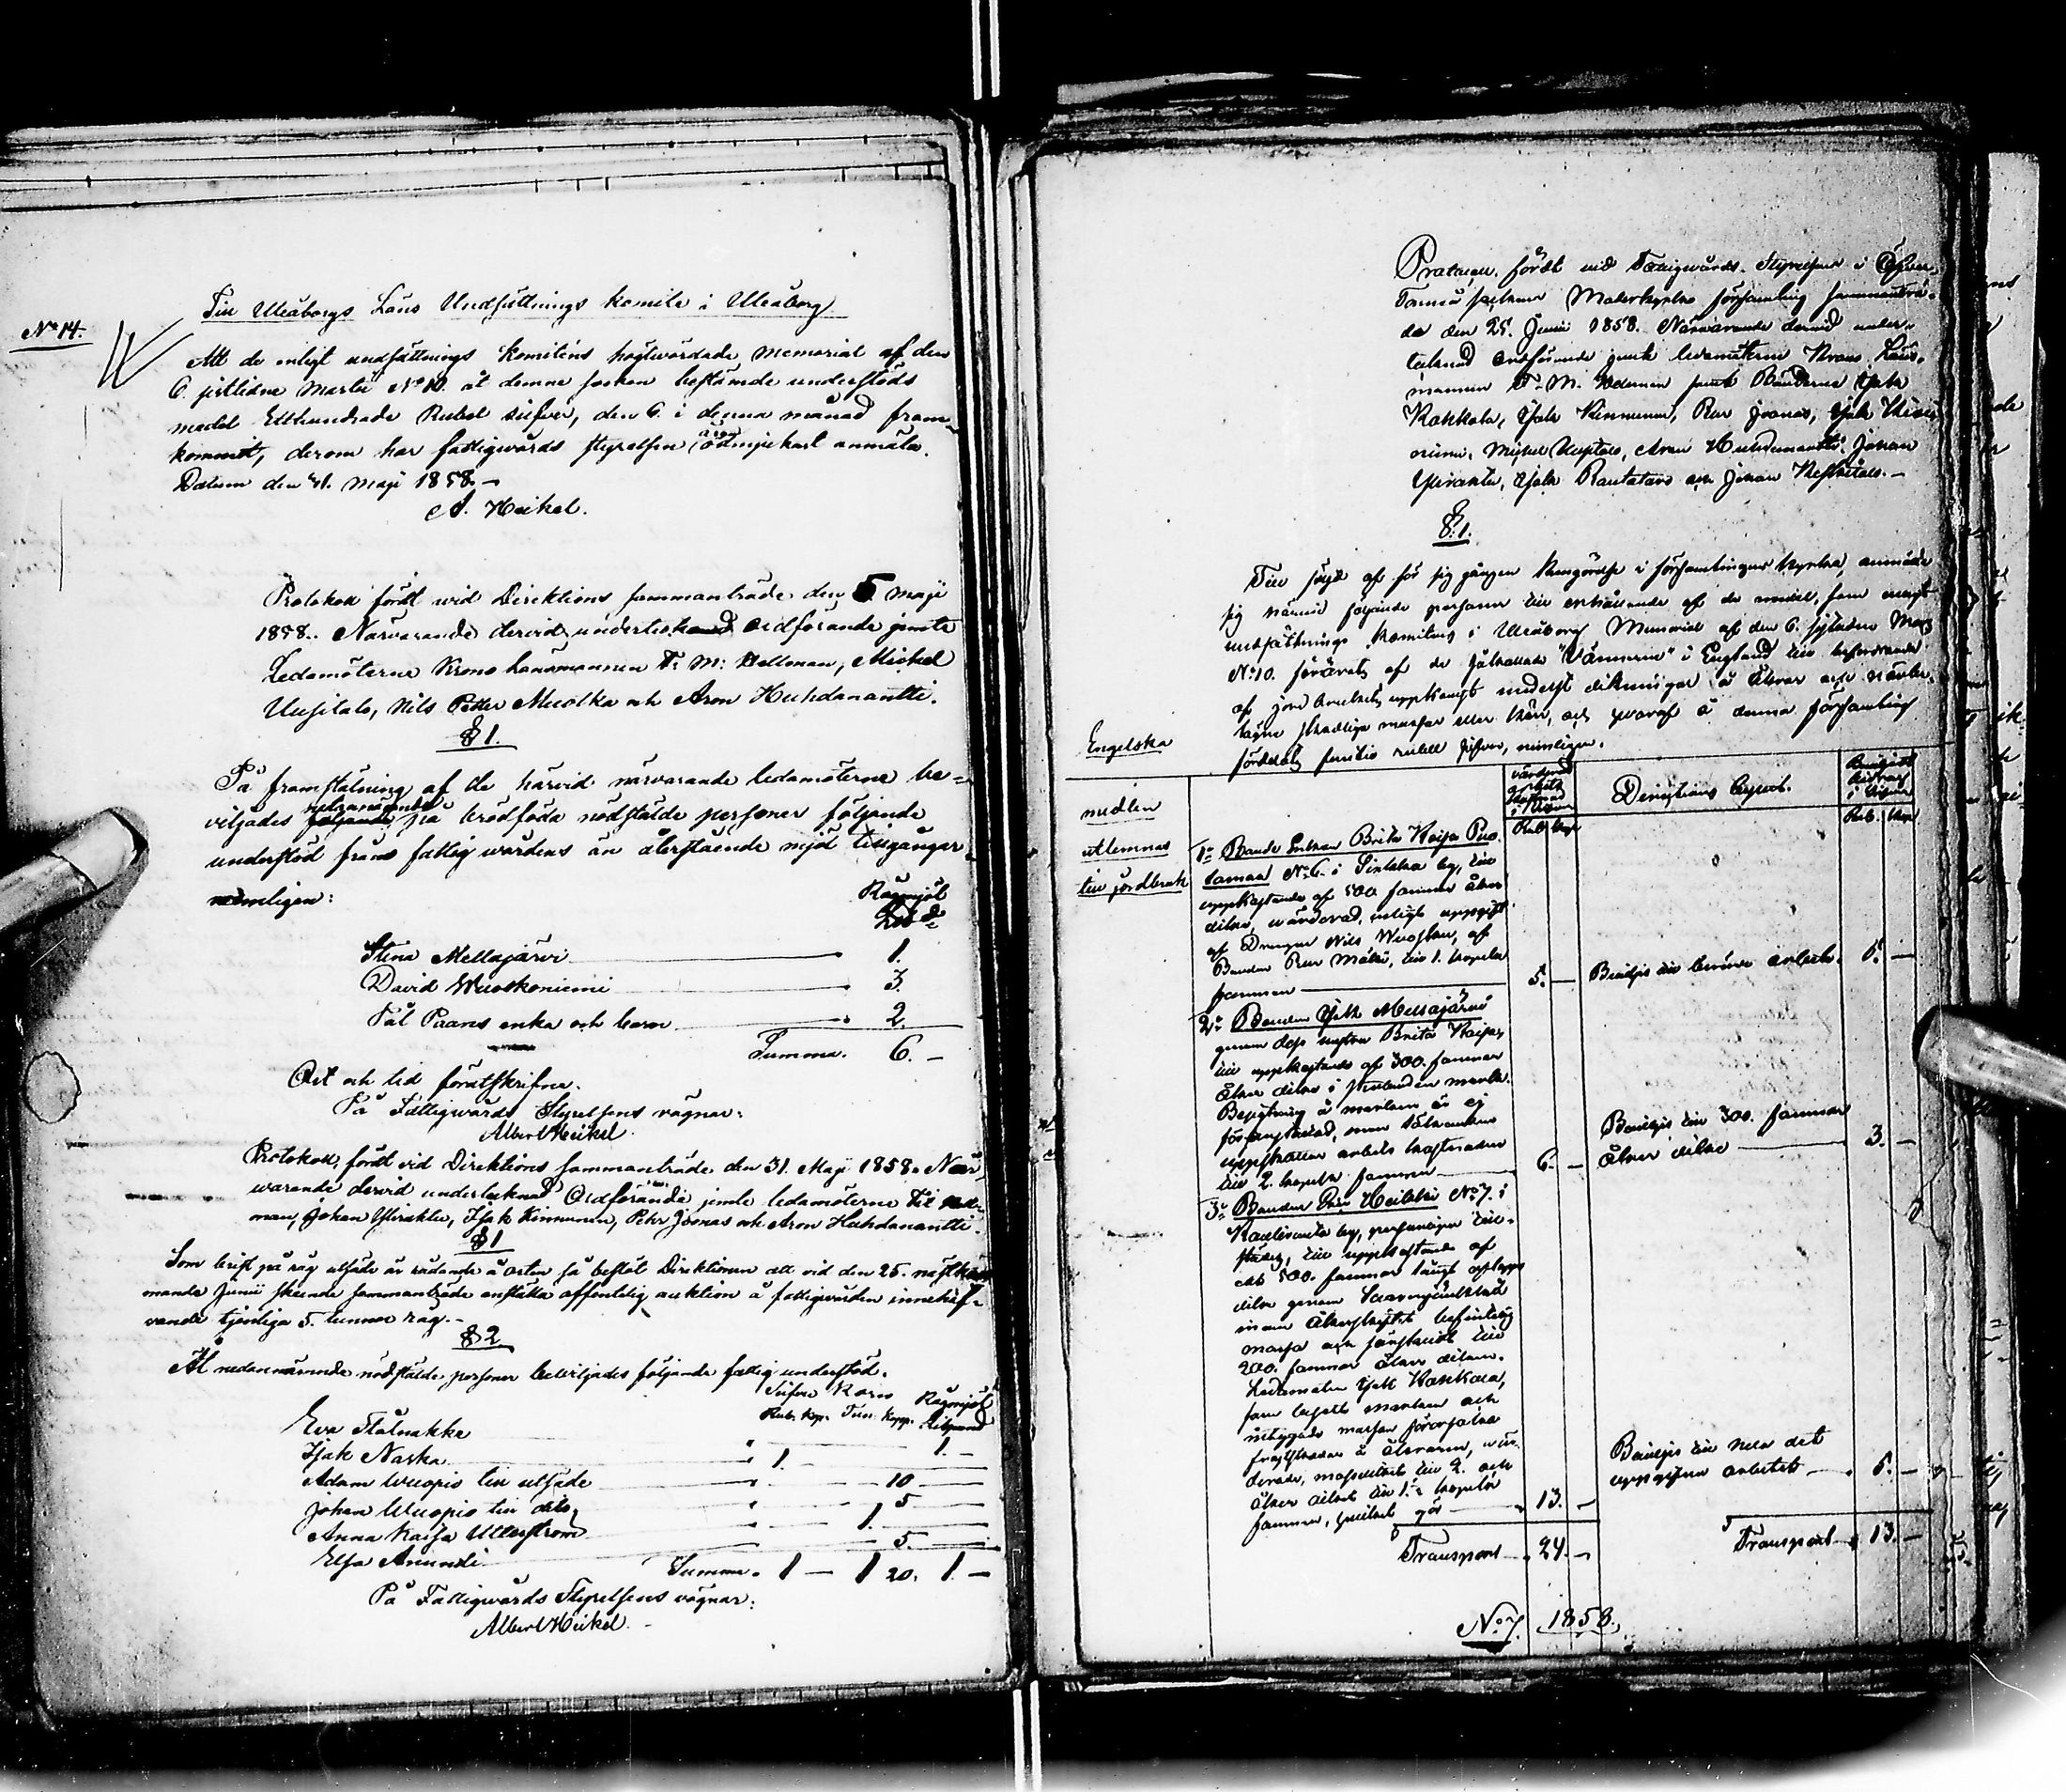 Till Uleåborgs Läns Undsättnings Komité i Uleåborg
No 14.
Att de enligt undsättnings Komiténs högtwördade Memorial af den
6. sistlidne Martii No 10. åt denna socken bestämde understöds
medel Etthundrade Rubel silfver, den 6. i denna månad fram-
kommit, derom har fattigwårds styrelsen äran ödmjukast anmäla.
Datum den 31. Maji 1858. -
A. Heikel.
Protokoll fördt wid Direktions sammanträde den 5 Maji
1858. Närvarande dervid undertecknad Ordförande jemte
Ledamöterne Krono Länsmannen F. M. Hellman, Michel
Uusitalo, Nils Petter Muotka och Aron Huhdanantti.
§ 1.
På framställning af de härvid närvarande ledamöterne be-
viljades nedannämnde på brödföda nödstälde personer följande
understöd från fattigwårdens än återstående mjöl tillgångar
nemligen:
Rågmjöl
Lisd
Stina Mellajärvi 1.
David Wuoskoniemi 3.
Pål Paans enka och barn 2.
Summa. 6. -
Ort och tid förutskrifne.
På Fattigwårds Styrelsens vägnar:
Albert Heikel.
Protokoll, fördt vid Direktions sammanträde den 31. Maji 1858. När-
warande dervid undertecknad Ordförande jemte ledamöterne
man, Johan Ylirakka, Isak Kinnunen, Pehr Joonas och Aron Huhdanantti.
§ 1
Som brist på råg utsäde är rådande å orten så beslöt Direktionen att vid den 25. nästkom
mande Junii skeende sammanträde anställa offentlig auktion å fattigwården innehaf-
vande tjenliga 5. tunnor råg. -
§ 2
Åt nedannämnde nödstälde personer bewiljades följande fattig understöd.
Silfver Korn Rågmjöl
Rub. Kop. Tun. Kapp. Lispund
Eva Stålnakke 1. -
Isak Naska 1. -
Adam Wuopio till utsäde 10
Johan Wuopio till dito 5
Anna Kaisa Ullerström 1.
Elsa Anundi 5.
Summa. 1 - 1 20. 1. -
På Fattigwårds Styrelsens vägnar:
Albert Heikel. -
Protocoll, fördt vid Fattigwårds Styrelsens i Öfver
Torneå sockens Moderkyrko församling sammanträ-
de den 25. Junii 1858. Närvarande dervid under-
tecknad Ordförande jemte ledamöterne Krono Läns-
mannen F. M. Hellman samt Bönderne Isak
Kokkola, Isak Kinnunen, Per Joonas, Isak
Michel Uusitalo, Aron Huhdanantti, Johan
Ylirakka, Isak Rautataro och Johan Keskitalo. -
§ 1.
Till följd af för sig gången kungörelse i församlingens kyrka, anmälde
sig härvid följande personer till erhållande af de medel, som enligt
undsättnings Komiténs i Uleåborg Memorial af den 6. sistlidne Mars
No 10. förärats af de så kallade "Vännerne" i England till befordrande
af jord brukets uppkomst medelst dikningar å åkrar och närbe-
lägne skadliga mossar eller kärr, och hvaraf å denna församling
fördelats femtio rubel silfver, nemligen.
Engelska
medlen
utlemnas
till jordbruk
värderad
arbets
kostnad
i silfver
Rub Kop
Direktions Beslut.
Beviljadt
bidrag
i silfver
Rub. Kop
1o Bonde Enkan Brita Kaisa Puo
tamaa No 6. i Sintakka by, till
upptagande af 500 famnar åker
diken, wärderad, enligt uppgift
af Drengen Nils Wuoskon, af
Bonden Per Mäki, till 1. kopek
famnen 5. - Beviljas till berörde arbete. 5. -
2o Bonden Isak Mellajärvi
genom dess hustru Brita Kaisa,
till upptagande af 300. famnar
åker diken i
Besigtning å marken är ej
uppskattar arbets kostnaden
till 2. kopek famnen 6. - Beviljas till 300. famnar
åker diken 3. -
3o Bonden Per Heikki No 7. i
Kaulinranta by, personligen till-
städes, till upptagande af
ett 500. famnar långt aflopps
dike genom
invid åkerskiftet befintlig
mosse och särskildt till
200. famnar åker diken.
Ledamoten Isak Kokkola,
som besett marken och
intygade mossen förorsaka
frostskador å åkrarne, wär-
derade, mossdiket till 2. och
åker diket till 1. kopek
famnen, hvilket gör 13. - Beviljas till hela det
uppgifna arbetet 5. -
Transport 24. - Transport 13. -
No 7. 1858.